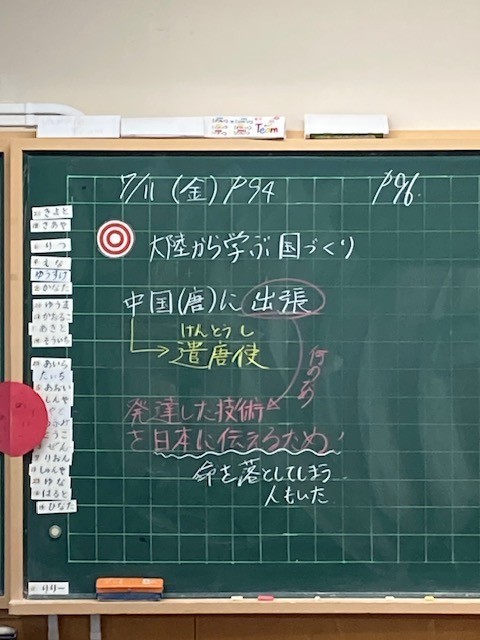 7/11 (金) P94
P96.
大陸から学ぶ国づくり
中国(唐)に出張
けんとうし
遣唐使
何のため
発達した技術
を日本に伝えるため
命を落としてしまう
人もいた
Team
きよと
さあや
りつ
えな
ゆうすけ
かなた
かおるこ
あきと
そういち
あいら
たいち
あおい
しんや
りおん
しゅんや
ゆな
はると
ひなた
りりー